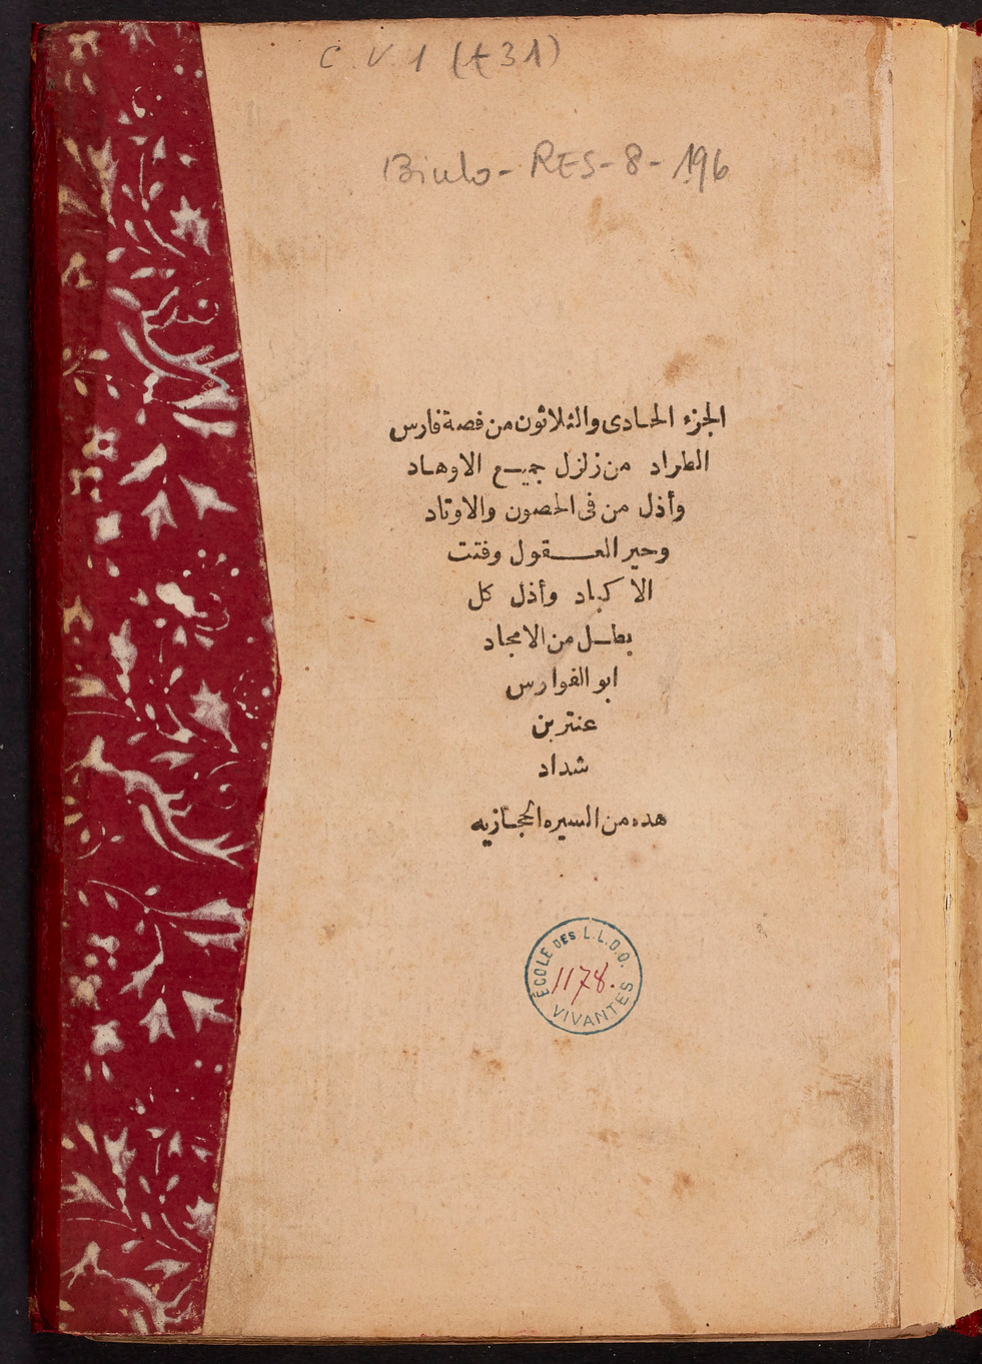 C.V.1 (t31)
Biulo-RES-8-196
الجزء الحادى والثلاثون من قصة فارس
الطراد من زلزل جميع الاوهاد
وأذل من فى الحصون والاوتاد
وحير العقول وفتت
الاكباد وأذل كل
بطل من الامجاد
ابو الفوارس
عنتر بن
شداد
هده من السيره الحجازيه
ÉCOLE DES L.L.O.O.
1178.
VIVANTES